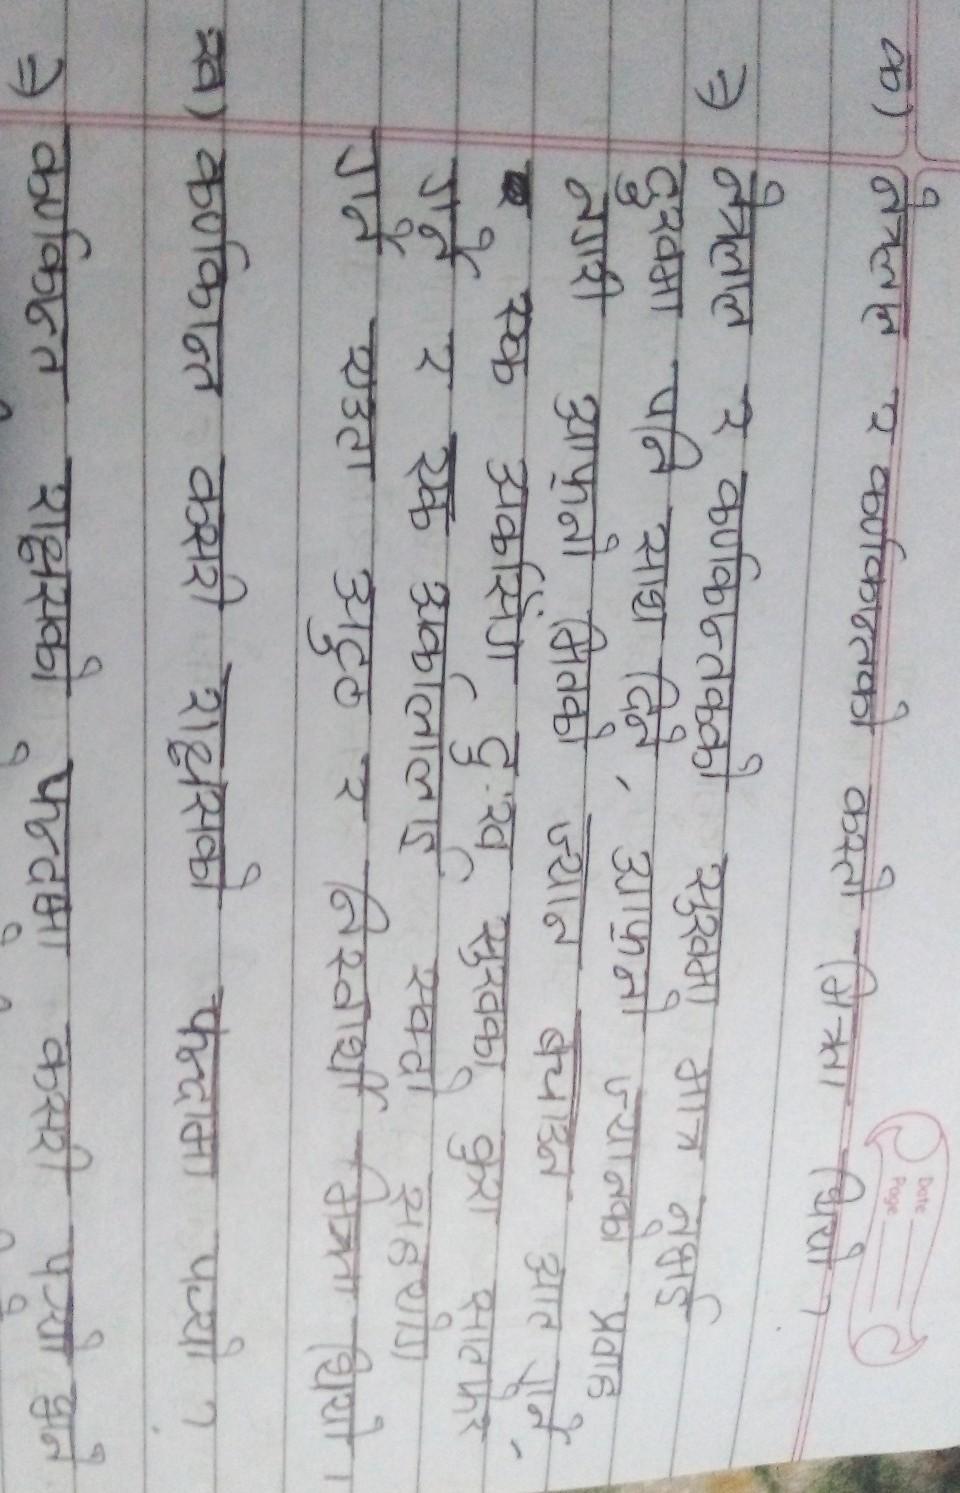 Date
Page
क) नेत्रलाल र कर्णकान्तको कस्तो मित्रता थियो ?
⇒ नेत्रलाल र कर्णकान्तको सुखमा मात्र नभई
दुखमा पनि साथ दिने, आफ्नो ज्यानको प्रवाह
नगरी आफ्नो मितको ज्यान बचाउन आत गर्ने,
एक अर्कासँग दुःख सुखका कुरा साटफेर
गर्ने र एक अर्कालाई एक्दा सहयोग
गर्ने एउटा अटुट र निस्वार्थी मित्रता थियो ।
ख) कर्णकान्त कसरी राइफलको फन्दामा पर्यो ?
⇒ कर्णकान्त फन्दामा कसरी पर्यो भने